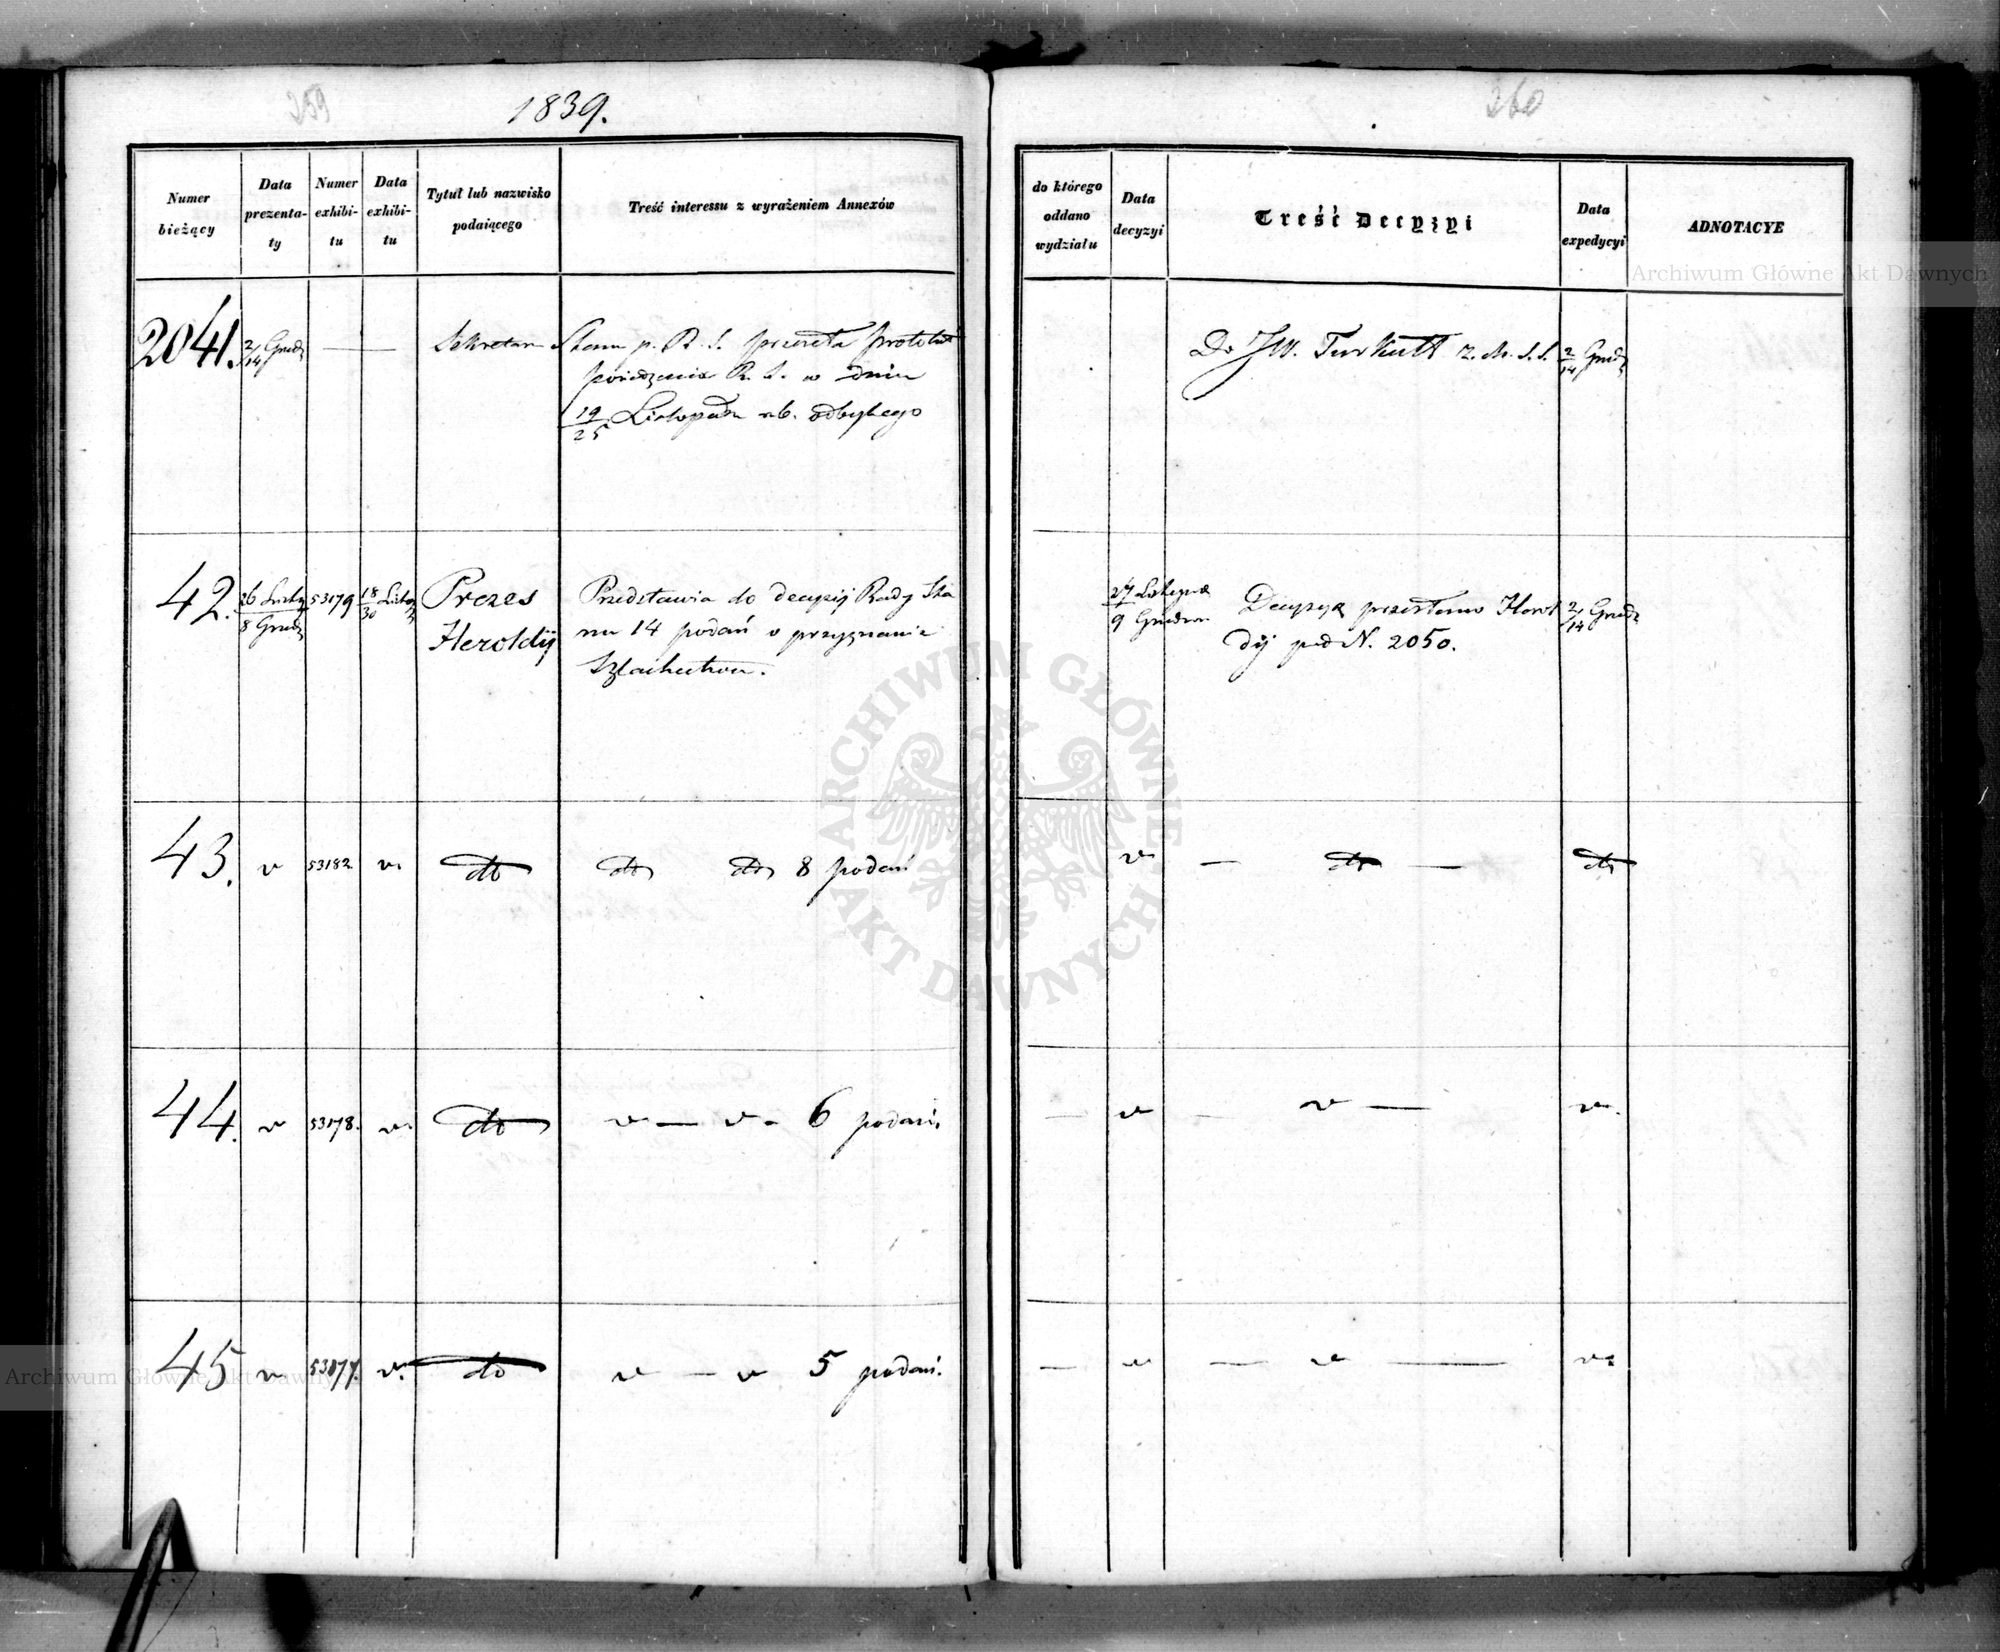 259
1839.
Numer bieżący
Data prezenta-ty
Numer exhibi-tu
Data exhibi-tu
Tytuł lub nazwisko podaiącego
Treść interessu z wyrażeniem Annexów
2041. 2/14 Grudz — Sekretarz Stanu p. R. S. przesyła protokuł
posiedzenia R. S. w dniu
Listopada rb. odbytego
42. 26 Listop 8 Grudz 53179 18/30 Listop Prezes Przedstawia do decyzij Rady Sta
Heroldij nu 14 podań o przyznanie
Szlachectwa.
43. v 53182 v. dto dto dto 8 podań
44. v 53178. v. dto v — v - 6 podań
45 v 53177. v. dto v — v 5 podań.
260
do którego oddano wydziału
Data decyzyi
Treść Decyzyi
Data expedycyi
ADNOTACYE
Do JW. Turkułł z. M. S. S. 2/14 Grudz
27 Listopad 9 Grudnia Decyzya przesłano Herol 2/14 Grudz
dij pod N. 2050.
v — dto — dto
— v — v — v.
— v — v — v.
Archiwum Główne Akt Dawnych
ARCHIWUM GŁÓWNE AKT DAWNYCH
Archiwum Główne Akt Dawnych